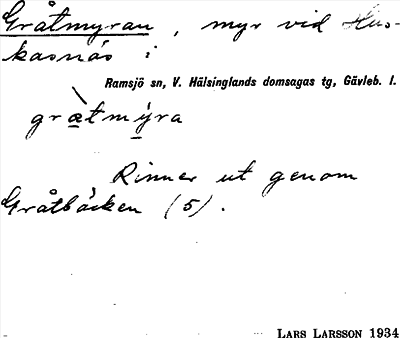 Gråtmyran, myr vid Hus-
kasnäs i
Ramsjö sn, V. Hälsinglands domsagas tg, Gävleb. l.
græ̀tmy̍ra
Rinner ut genom
Gråtbäcken (5).
LARS LARSSON 1934